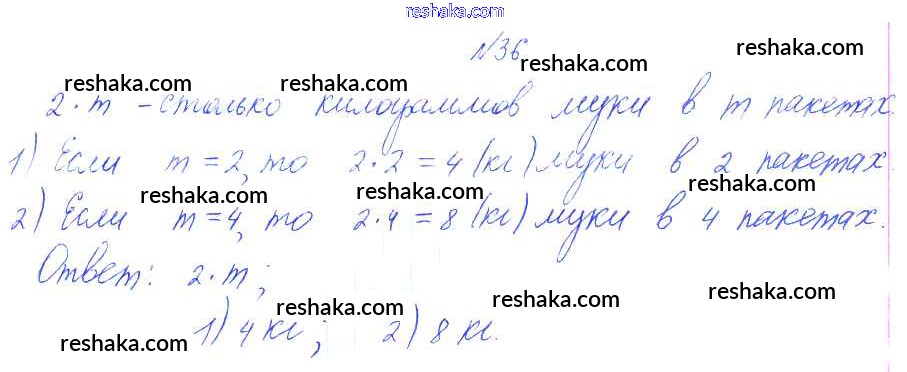 reshaka.com
№36
reshaka.com
reshaka.com
reshaka.com reshaka.com
2·m -столько килограммов муки в m пакетах.
reshaka.com
1) Если m=2, то 2·2=4 (кг) муки в 2 пакетах
reshaka.com reshaka.com reshaka.com
2) Если m=4, то 2·4=8 (кг) муки в 4 пакетах.
Ответ: 2·m;
reshaka.com reshaka.com reshaka.com
1) 4 кг; 2) 8 кг.
reshaka.com reshaka.com